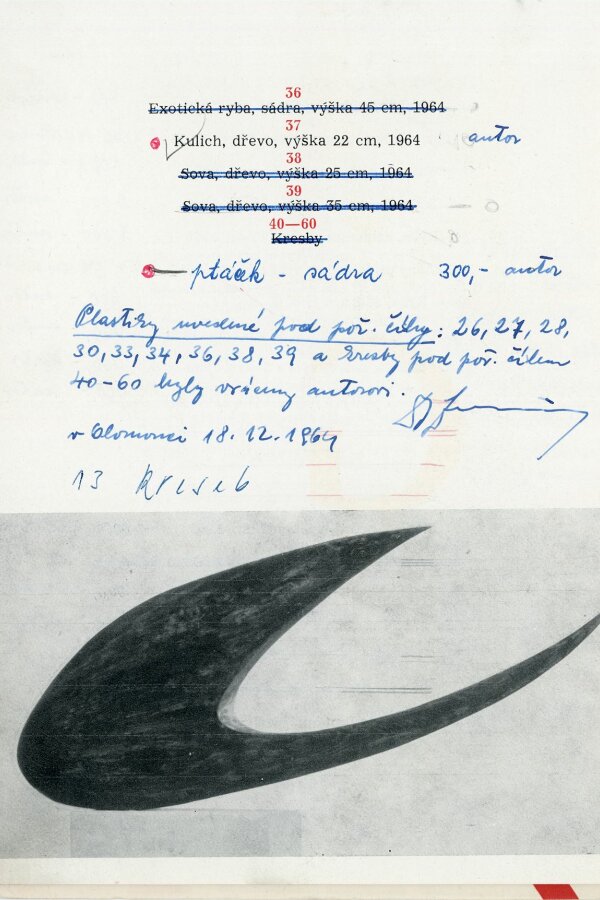 36
Exotická ryba, sádra, výška 45 cm, 1964
37
Kulich, dřevo, výška 22 cm, 1964 autor
38
Sova, dřevo, výška 25 cm, 1964
39
Sova, dřevo, výška 35 cm, 1964
40—60
Kresby
ptáček - sádra 300,- autor
Plastiky uvedené pod poř. čísly: 26, 27, 28,
30, 33, 34, 36, 38, 39 a kresby pod poř. číslem
40-60 byly vráceny autorovi.
v Olomouci 18. 12. 1964
13 kreseb